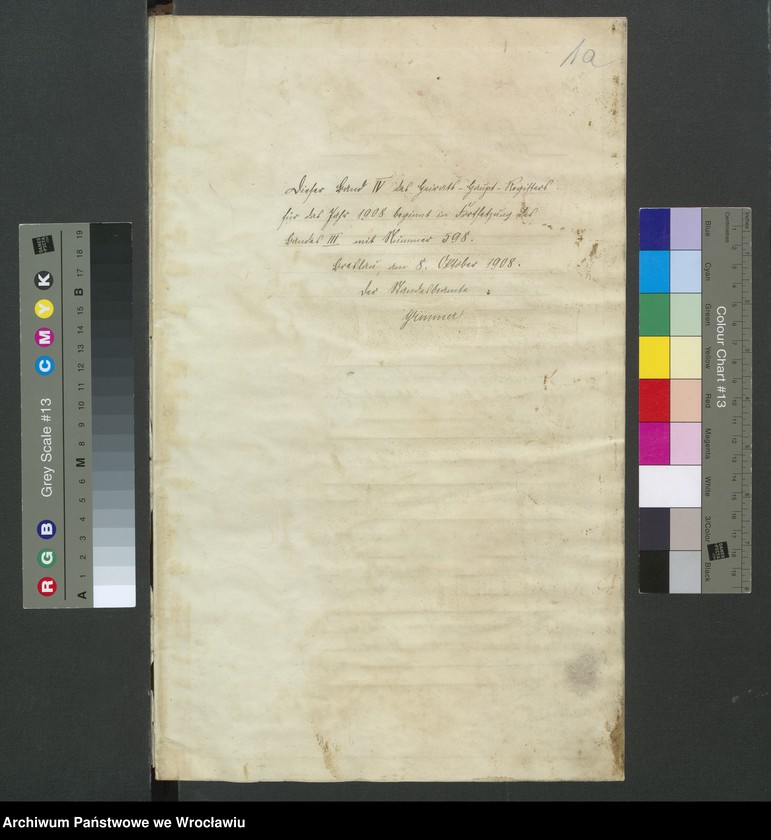 1a
Dieser Band IV des Heirats-Haupt-Registers
für das Jahr 1908 beginnt in Fortsetzung des
Bandes III mit Nummer 598.
Breslau am 8. October 1908.
Der Standesbeamte
Grimmer
Grey Scale #13
R G B C M Y K
A 1 2 3 4 5 6 M 8 9 10 11 12 13 14 15 B 17 18 19
Colour Chart #13
Blue
Cyan
Green
Yellow
Red
Magenta
White
3/Color
Black
Centimetres
Inches
Archiwum Państwowe we Wrocławiu